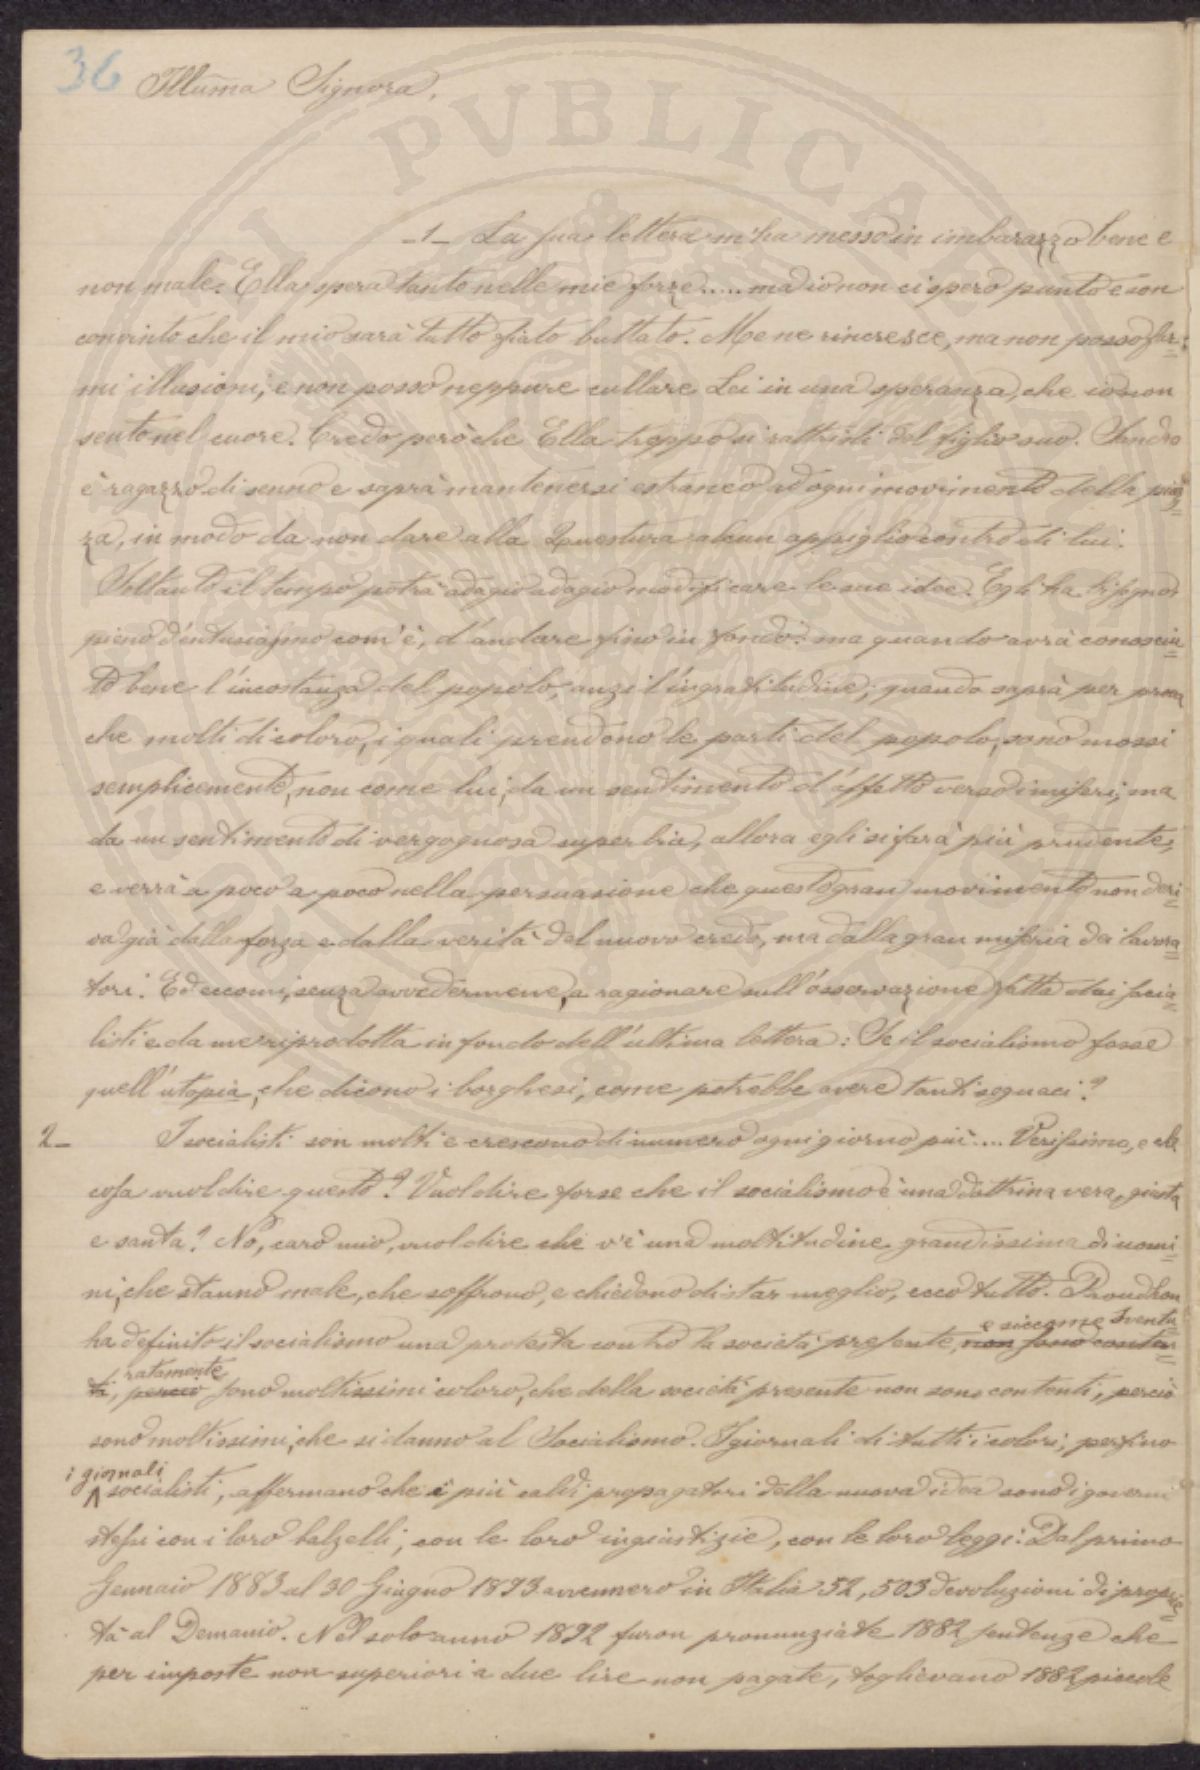 36 Illuma Signora,
-1- La sua lettera m'ha messo in imbarazzo bene e
non male. Ella spera tanto nelle mie forze..... ma io non ci spero punto e son
convinto che il mio sarà tutto fiato buttato. Me ne rincresce, ma non posso far=
mi illusioni, e non posso neppure cullare Lei in una speranza, che io non
sento nel cuore. Credo però che Ella troppo si rattristi del figlio suo. Sandro
è ragazzo di senno e saprà mantenersi estraneo ad ogni movimento della piaz=
za, in modo da non dare alla Questura alcun appiglio contro di lui.
Soltanto il tempo potrà adagio adagio modificare le sue idee. Egli ha bisogno,
pieno d'entusiasmo com'è, d'andare fino in fondo: ma quando avrà conosciu=
to bene l'incostanza del popolo, anzi l'ingratitudine; quando saprà per prova
che molti di coloro, i quali prendono le parti del popolo, sono mossi
semplicemente, non come lui, da un sentimento d'affetto verso i miseri, ma
da un sentimento di vergognosa superbia, allora egli si farà più prudente,
e verrà a poco a poco nella persuasione che questo gran movimento non deri=
va già dalla forza e dalla verità del nuovo credo, ma dalla gran miseria dei lavora=
tori. Ed eccomi, senza avvedermene, a ragionare sull'osservazione fatta dai socia=
listi e da me riprodotta in fondo dell'ultima lettera: Se il socialismo fosse
quell'utopia, che dicono i borghesi, come potrebbe avere tanti seguaci?
2- I socialisti son molti e crescono di numero ogni giorno più.... Verissimo, e che
cosa vuol dire questo? Vuol dire forse che il socialismo è una dottrina vera, giusta
e santa? No, caro mio, vuol dire che v'è una moltitudine grandissima di uomi=
ni, che stanno male, che soffrono, e chiedono di star meglio, ecco tutto. Proudhon
ha definito il socialismo una protesta contro la società presente, e siccome sventu= non sono conten=
ratamente ti, perciò sono moltissimi coloro, che della società presente non sono contenti, perciò
sono moltissimi, che si danno al Socialismo. I giornali di tutti i colori, perfino
i giornali socialisti, affermano che i più caldi propagatori della nuova idea sono i governi
stessi con i loro balzelli, con le loro ingiustizie, con le loro leggi: Dal primo
Gennaio 1883 al 30 Giugno 1893 avvennero in Italia 52,503 devoluzioni di proprie=
tà al Demanio. Nel solo anno 1892 furon pronunziate 1882 sentenze che
per imposte non superiori a due lire non pagate, toglievano 1882 piccole